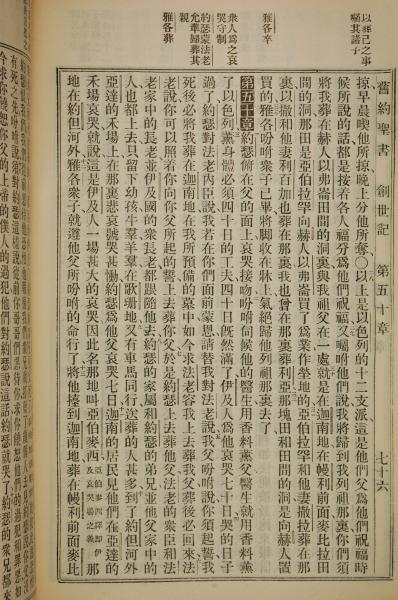 舊約聖書 創世記 第五十章 七十六
以葬己之事
囑其諸子
雅各卒
衆人爲之哀
哭守制
約瑟蒙法老
允葬歸葬其
親
雅各葬
掠早晨喫他所掠晚上分他所奪○以上是以色列的十二支派這是他們父爲他們祝福時
候所說的話都是按着各人福分爲他們祝福又囑咐他們說我將歸到我列祖那裏你們須
將我葬在赫人以弗崙田間的洞裏與我祖父在一處就是在迦南地在幔利前面麥比拉田
間的洞那田是亞伯拉罕向赫人以弗崙買了爲業作墳地的亞伯拉罕和他妻撒拉葬在那
裏以撒和他妻利百加也葬在那裏我也曾在那裏葬利亞那塊田和田間的洞是向赫人置
買的雅各吩咐衆子已畢將脚收在牀上氣絕歸他列祖那裏去了
第五十章約瑟俯在父的面上哀哭接吻吩咐伺候他的醫生用香料薰父醫生就用香料薰
了以色列薰身體必須四十日的工夫四十日旣然滿了伊及人爲他哀哭七十日哀哭的日子
過了約瑟對法老內臣說我若在你們面前蒙恩請替我對法老說我父吩咐說你須起誓我
死後必將我葬在迦南地在我所預備的墓中如今求法老容我上去葬我父葬後必回來法
老說你可以照着你向你父所起的誓上去葬你父於是約瑟上去葬他父法老的衆臣和法
老家中的長老並伊及國的衆長老都跟隨他去約瑟的家屬和約瑟的弟兄並他父家中的
人也都上去只留下幼孩牛羣羊羣在歌珊地又有車馬同行送葬的人甚多到了約但河外
亞達的禾場上在那裏悲哀號哭甚慟約瑟爲他父哀哭七日迦南的居民見他們在亞達的
禾場哀哭就說這是伊及人一場甚大的哀哭因此名那地叫亞伯麥西亞伯麥西譯卽伊及哀哭場之義那
地在約但河外雅各衆子就遵他父所吩咐的命行了將他擡到迦南地葬在幔利前面麥比